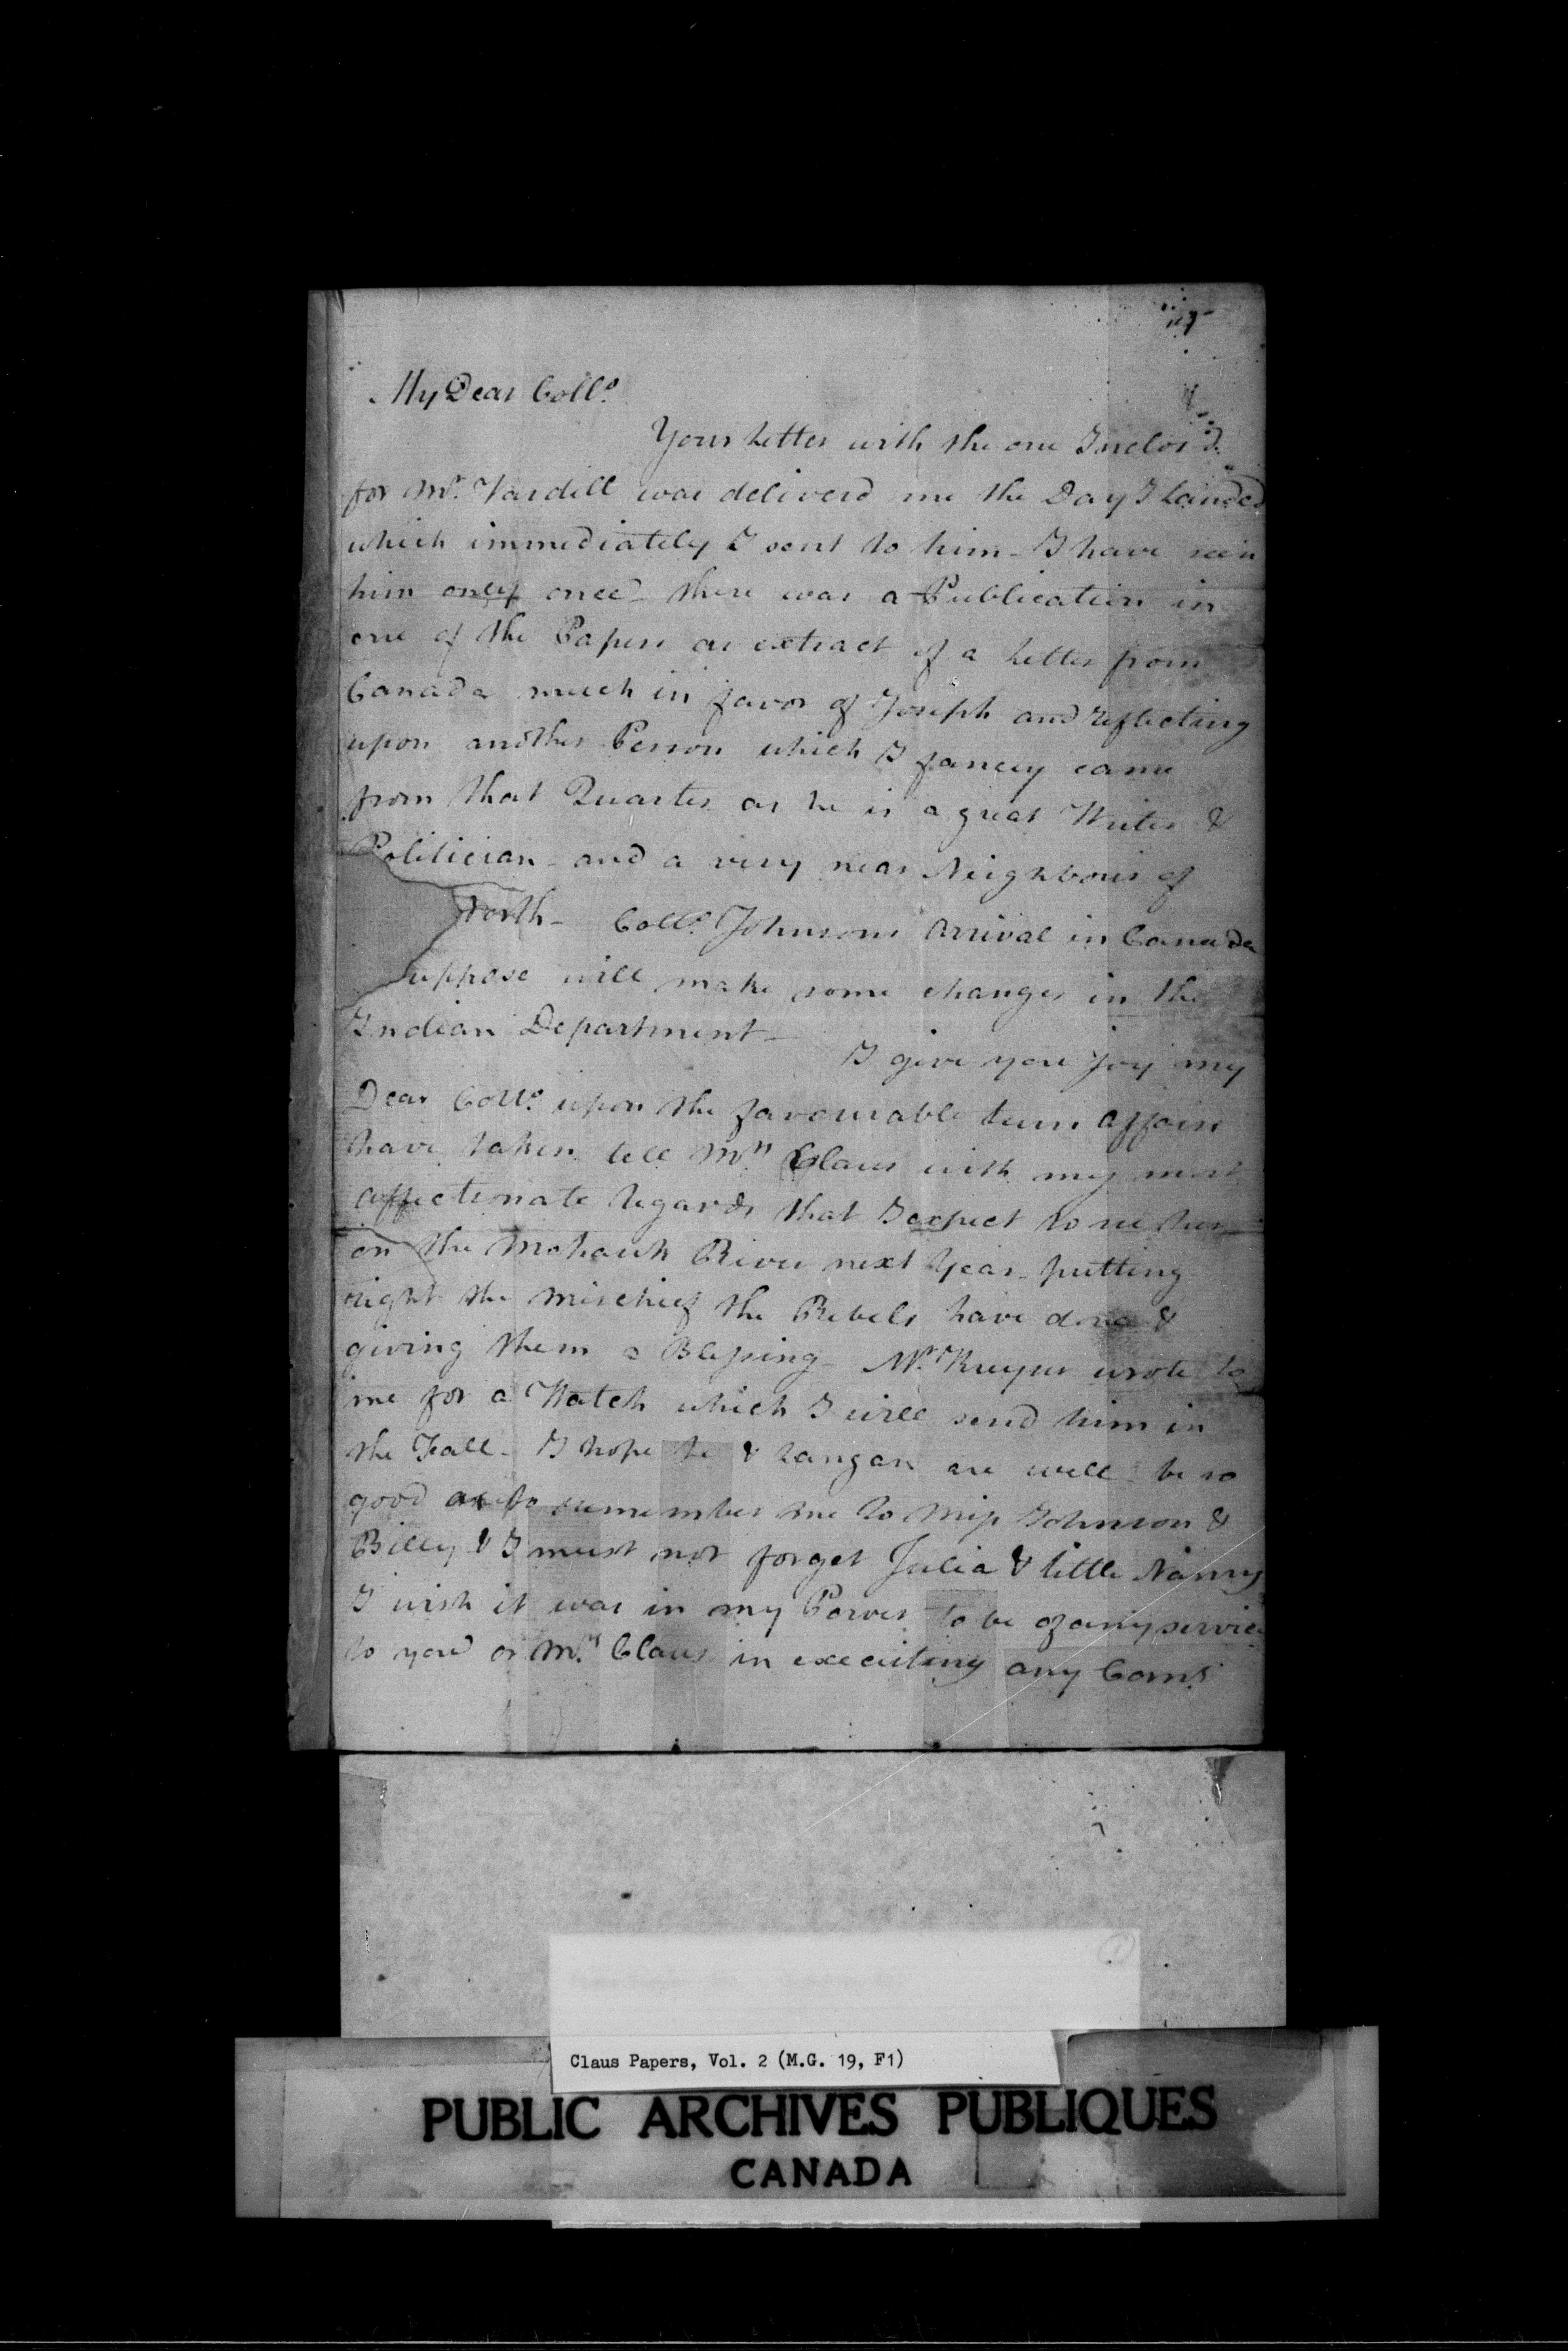 My Dear Coll.o
Your Letter with the one Inclos'd
for Mr. Vardill was deliverd me the Day I Landed
which immediately I sent to him - I have seen
him only once - there was a Publication in
one of the Papers as extract of a Letter from
Canada much in favor of Joseph and reflecting
upon another Person which I fancy came
from that Quarter as he is a great Writer &
Politician - and a very near Neighbour of
North - Coll.o Johnsons Arrival in Canada
uppose will make some changes in the
Indian Department -
I give you Joy my
Dear Coll.o upon the favourable turn affairs
have taken tell Mrs. Claus with my most
affectionate Regards that I expect to see her
on the Mohawk River next Year - putting
right the Mischief the Rebels have done &
giving them a Blessing - Mr. Kuyper wrote to
me for a Watch which I will send him in
the Fall - I hope he & Langan are well be so
good as to remember me to Miss Johnson &
Billy & I must not forget Julia & little Nancy
I wish it was in my Power to be of any service
to you or Mrs. Claus in executing any Coms.
Claus Papers, Vol. 2 (M.G. 19, F1)
PUBLIC ARCHIVES PUBLIQUES
CANADA